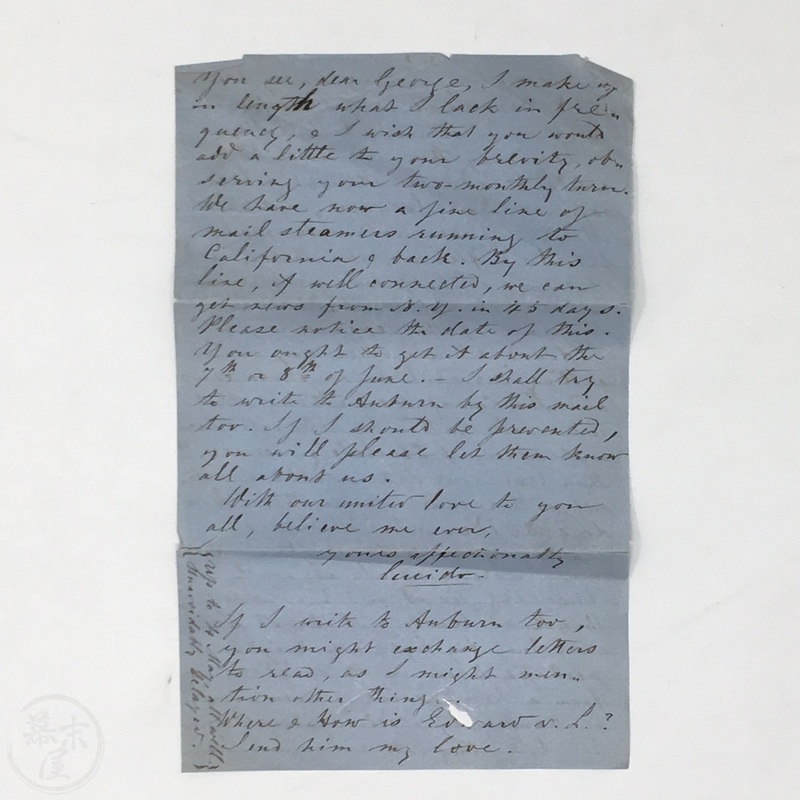 You see, dear George, I make up
in length what I lack in fre-
quency, & I wish that you would
add a little to your brevity, ob-
serving your two-monthly turn.
We have now a fine line of
mail steamers running to
California & back. By this
line, if well connected, we can
get news from N. Y. in 45 days.
Please notice the date of this.
You ought to get it about the
7th or 8th of June. - I shall try
to write to Auburn by this mail
too. If I should be prevented,
you will please let them know
all about us.
With our united love to you
all, believe me ever,
yours affectionatly
Guido.
If I write to Auburn too,
you might exchange letters
to read, as I might men-
tion other thing.
Where & How is Edward v. L.?
Send him my love.
Up to 4 May all well
Unavoidably delayed.
幕末屋